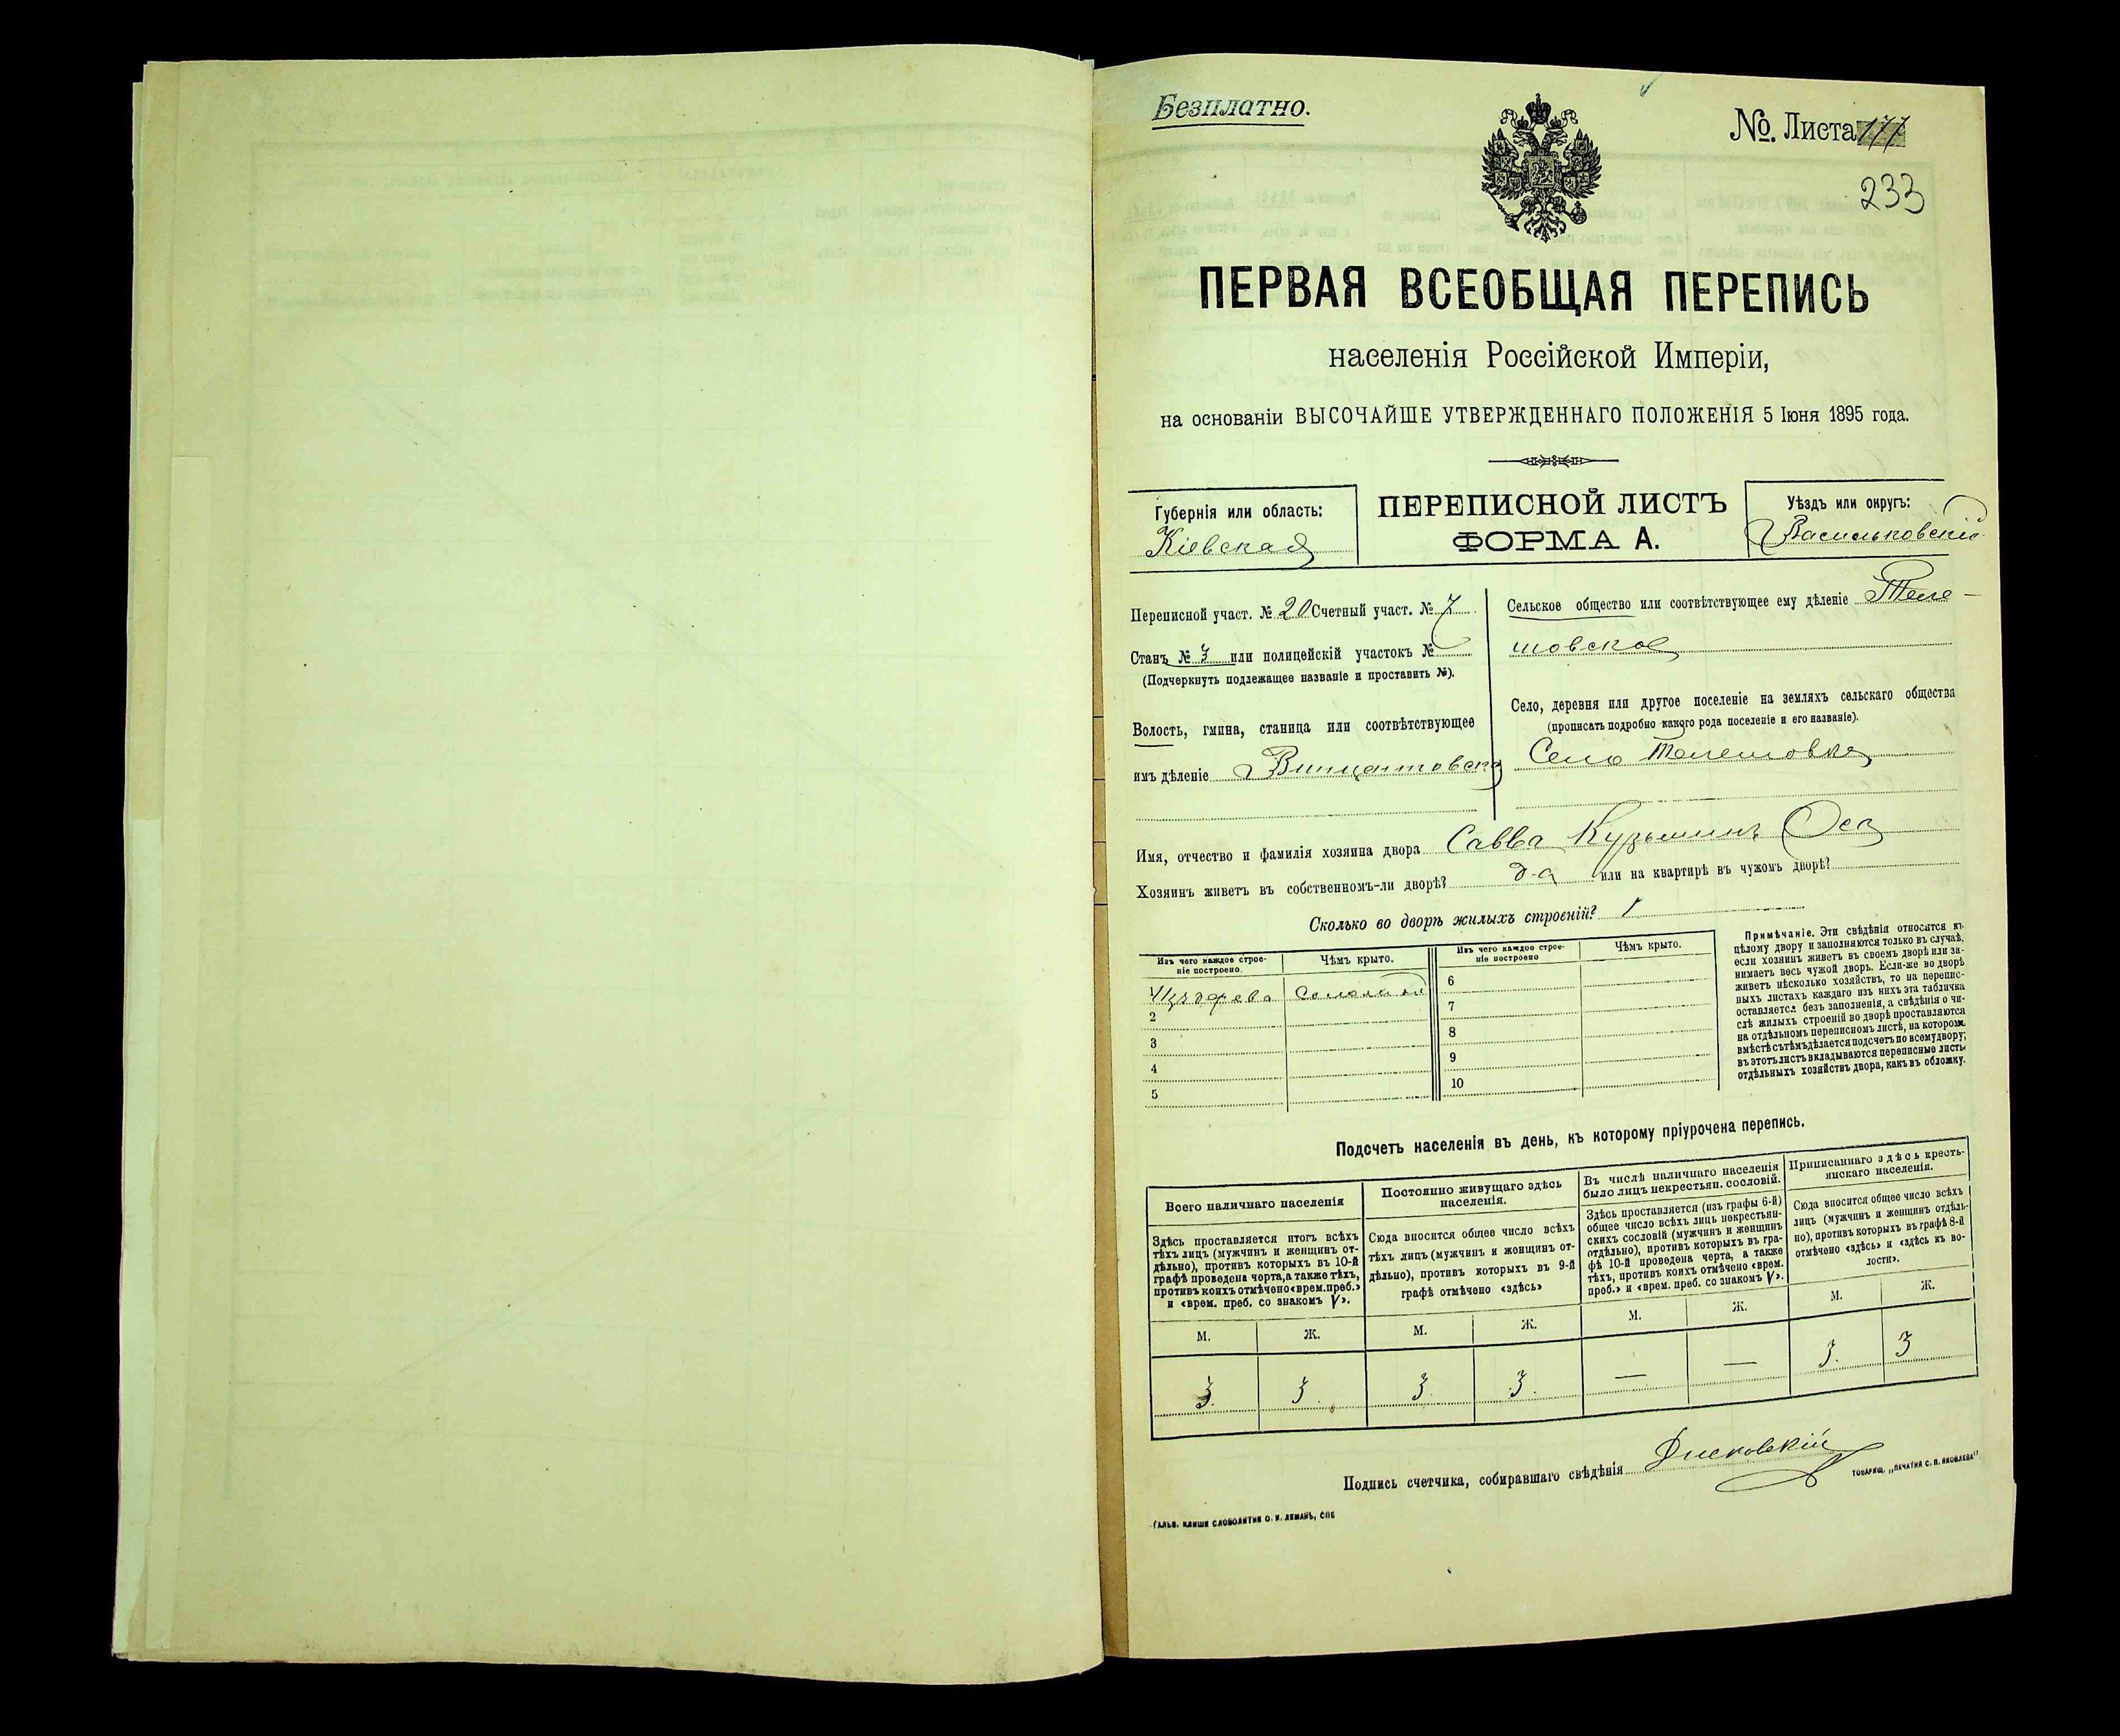 Безплатно.
№. Листа 177
233
ПЕРВАЯ ВСЕОБЩАЯ ПЕРЕПИСЬ
населенія Россійской Имперіи,
на основаніи ВЫСОЧАЙШЕ УТВЕРЖДЕННАГО ПОЛОЖЕНІЯ 5 Іюня 1895 года.
Губернія или область:
Кіевская
ПЕРЕПИСНОЙ ЛИСТЪ
ФОРМА А.
Уѣздъ или округъ:
Васильковскій
Переписной участ. № 20 Счетный участ. № 7
Станъ № 3 или полицейскій участокъ №
(Подчеркнуть подлежащее названіе и проставить №).
Волость, гмина, станица или соотвѣтствующее
имъ дѣленіе Винцентовск
Сельское общество или соотвѣтствующее ему дѣленіе Теле-
шовское
Село, деревня или другое поселеніе на земляхъ сельскаго общества
(прописать подробно какого рода поселеніе и его названіе).
Село Телешовка
Имя, отчество и фамилія хозяина двора Савва Кузьминъ Оса
Хозяинъ живетъ въ собственномъ-ли дворѣ? да или на квартирѣ въ чужомъ дворѣ?
Сколько во дворѣ жилыхъ строеній? 1
Изъ чего каждое строе-
ніе построено.
Чѣмъ крыто.
Изъ чего каждое строе-
ніе построено
Чѣмъ крыто.
1 Изъ дерева соломой
2
3
4
5
6
7
8
9
10
Примѣчаніе. Эти свѣдѣнія относятся къ
цѣлому двору и заполняются только въ случаѣ,
если хозяинъ живетъ въ своемъ дворѣ или за-
нимаетъ весь чужой дворъ. Если-же во дворѣ
живетъ нѣсколько хозяйствъ, то на перепис-
ныхъ листахъ каждаго изъ нихъ эта табличка
оставляется безъ заполненія, а свѣдѣнія о чи-
слѣ жилыхъ строеній во дворѣ проставляются
на отдѣльномъ переписномъ листѣ, на которомъ
вмѣстѣ съ тѣмъ дѣлается подсчетъ по всему двору;
въ этотъ листъ вкладываются переписные листы
отдѣльныхъ хозяйствъ двора, какъ въ обложку.
Подсчетъ населенія въ день, къ которому пріурочена перепись.
Всего наличнаго населенія
Здѣсь проставляется итогъ всѣхъ
тѣхъ лицъ (мужчинъ и женщинъ от-
дѣльно), противъ которыхъ въ 10-й
графѣ проведена черта, а также тѣхъ,
противъ коихъ отмѣчено «врем. преб.»
и «врем. преб. со знакомъ V».
Постоянно живущаго здѣсь
населенія.
Сюда вносится общее число всѣхъ
тѣхъ лицъ (мужчинъ и женщинъ от-
дѣльно), противъ которыхъ въ 9-й
графѣ отмѣчено «здѣсь»
Въ числѣ наличнаго населенія
было лицъ некрестьян. сословій.
Здѣсь проставляется (изъ графы 6-й)
общее число всѣхъ лицъ некрестьян-
скихъ сословій (мужчинъ и женщинъ
отдѣльно), противъ которыхъ въ гра-
фѣ 10-й проведена черта, а также
тѣхъ, противъ коихъ отмѣчено «врем.
преб.» и «врем. преб. со знакомъ V».
Приписаннаго здѣсь кресть-
янскаго населенія.
Сюда вносится общее число всѣхъ
лицъ (мужчинъ и женщинъ отдѣль-
но), противъ которыхъ въ графѣ 8-й
отмѣчено «здѣсь» и «здѣсь въ во-
лости».
М. Ж. М. Ж. М. Ж. М. Ж.
3. 3. 3. 3. — — 3. 3
Подпись счетчика, собиравшаго свѣдѣнія
ГАЛЬВ. КЛИШЕ СЛОВОЛИТНИ О. И. ЛЕМАНЪ, СПБ
ТОВАРИЩ. „ПЕЧАТНЯ С. П. ЯКОВЛЕВА"